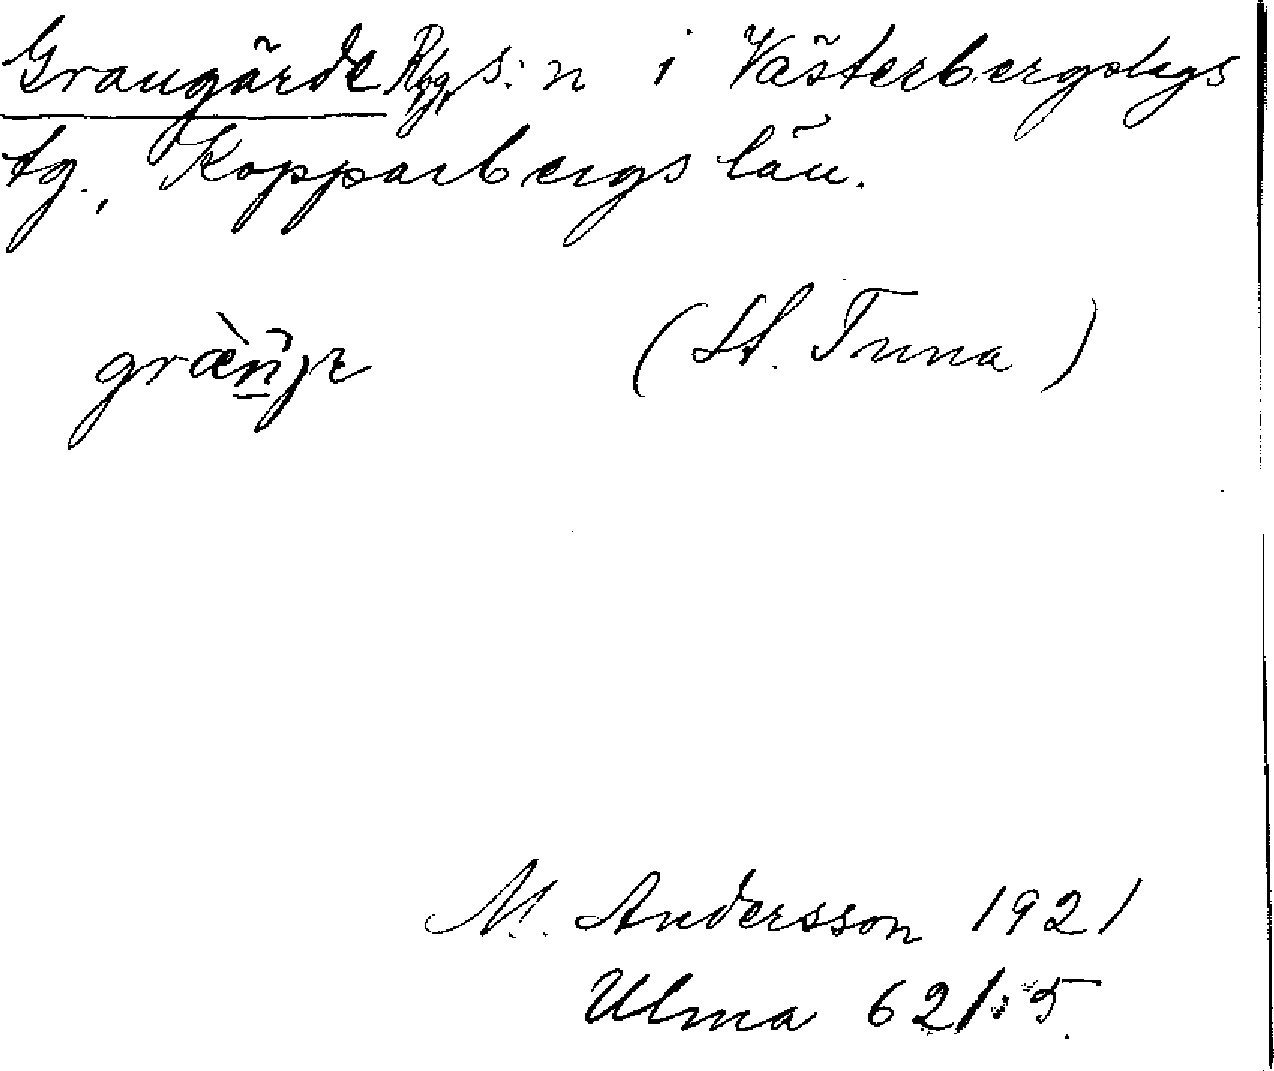 Grangärde Rbg s:n i Västerbergslags
tg., Kopparbergs län.
(St. Tuna)
M. Andersson 1921
Ulma 62